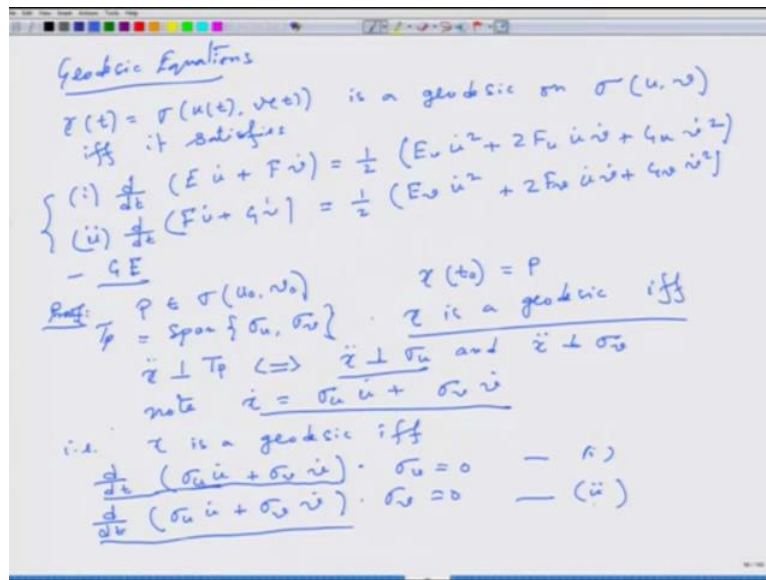 Geodesic Equations
γ(t) = σ(u(t), v(t)) is a geodesic on σ(u, v)
iff it satisfies
(i) d/dt (E u̇ + F v̇) = 1/2 (E_u u̇² + 2 F_u u̇ v̇ + G_u v̇²)
(ii) d/dt (F u̇ + G v̇) = 1/2 (E_v u̇² + 2 F_v u̇ v̇ + G_v v̇²)
— GE
Proof: P ∈ σ(u₀, v₀) γ(t₀) = P
T_P = span {σ_u, σ_v} . γ is a geodesic iff
γ̈ ⊥ T_P <=> γ̈ ⊥ σ_u and γ̈ ⊥ σ_v
note γ̇ = σ_u u̇ + σ_v v̇
i.e. γ is a geodesic iff
d/dt (σ_u u̇ + σ_v v̇) · σ_u = 0 — (i)
d/dt (σ_u u̇ + σ_v v̇) · σ_v = 0 — (ii)